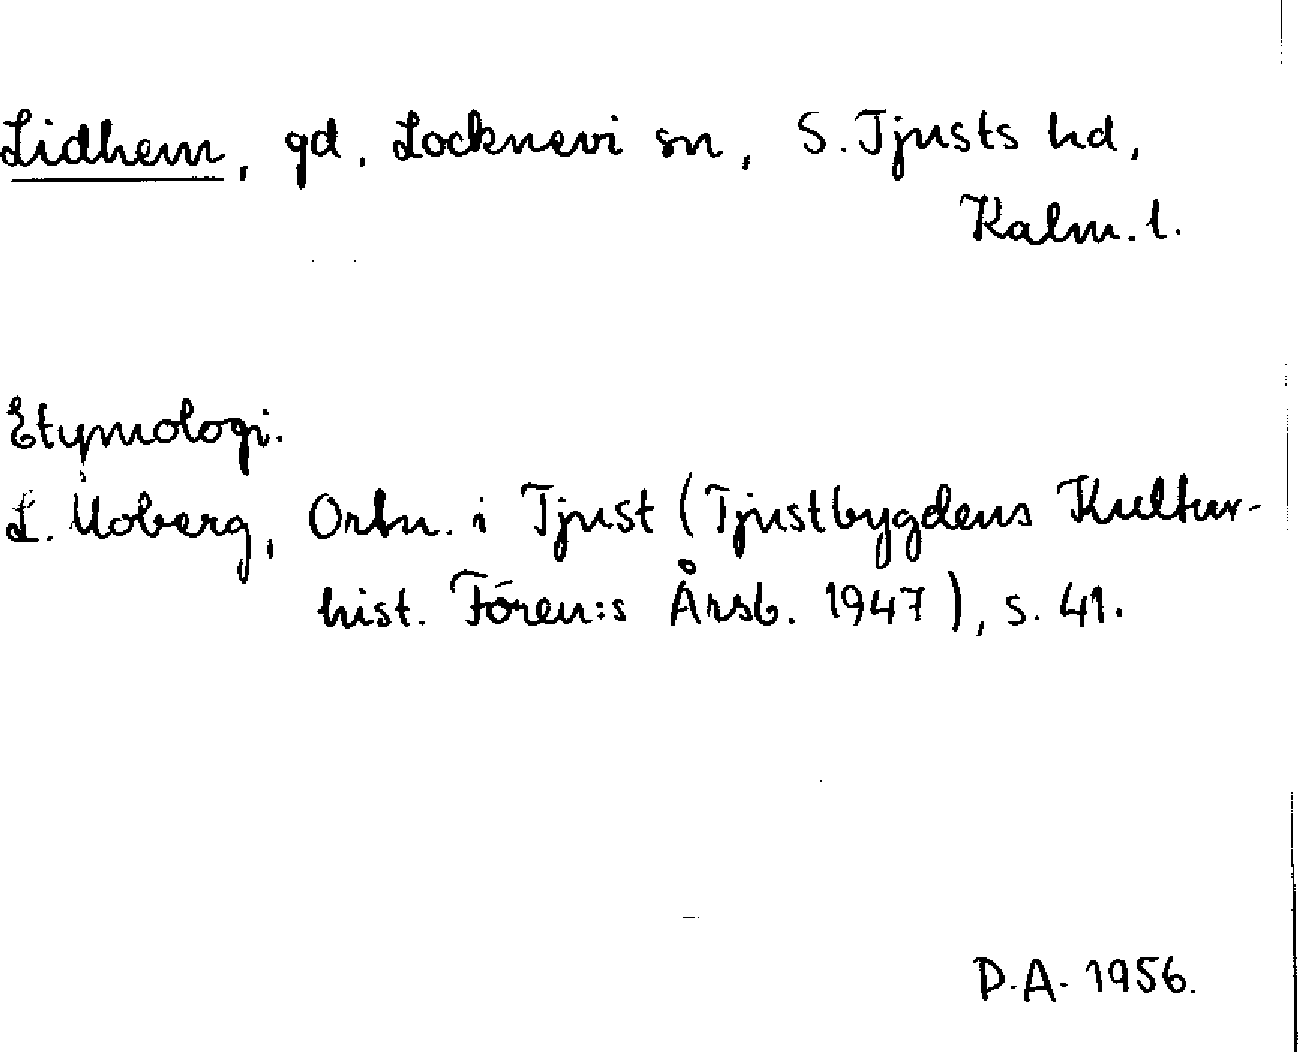 Lidhem, gd, Locknevi sn, S. Tjusts hd,
Kalm. l.
Etymologi.
L. Moberg, Ortn. i Tjust (Tjustbygdens Kultur-
hist. Fören:s Årsb. 1947), s. 41.
D.A. 1956.